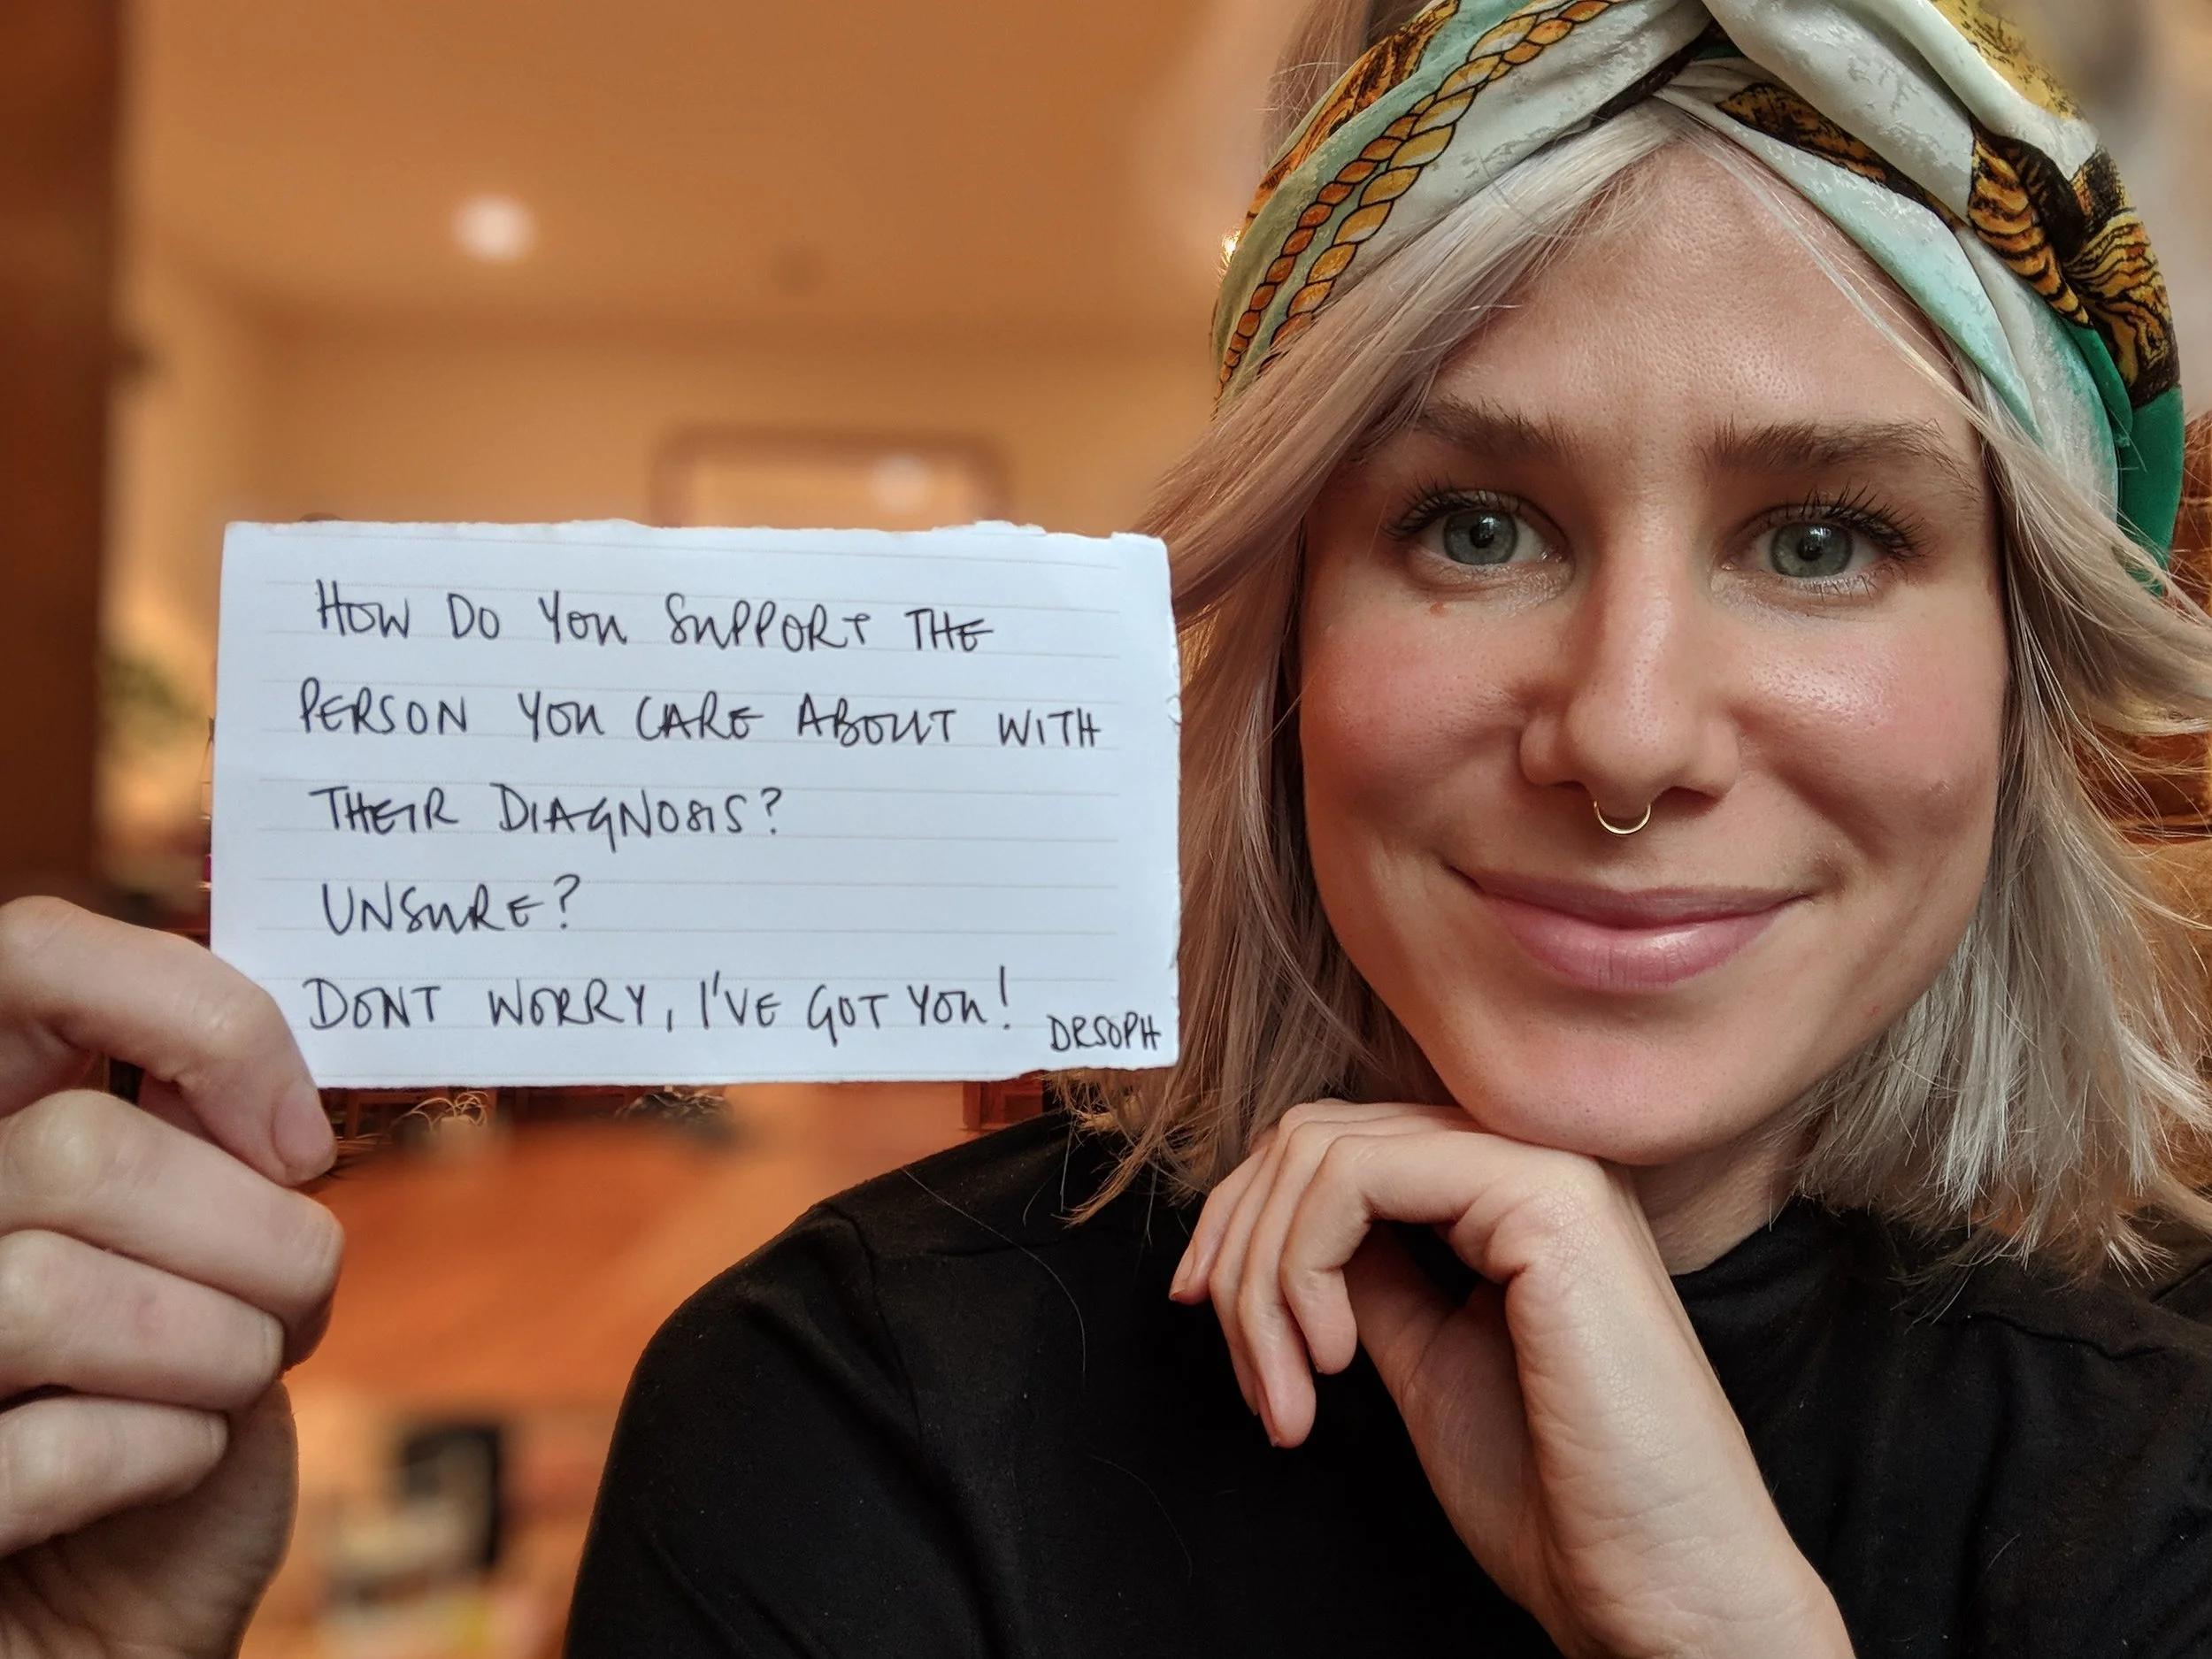 HOW DO YOU SUPPORT THE
PERSON YOU CARE ABOUT WITH
THEIR DIAGNOSIS?
UNSURE?
DONT WORRY, I'VE GOT YOU!
DRSOPH